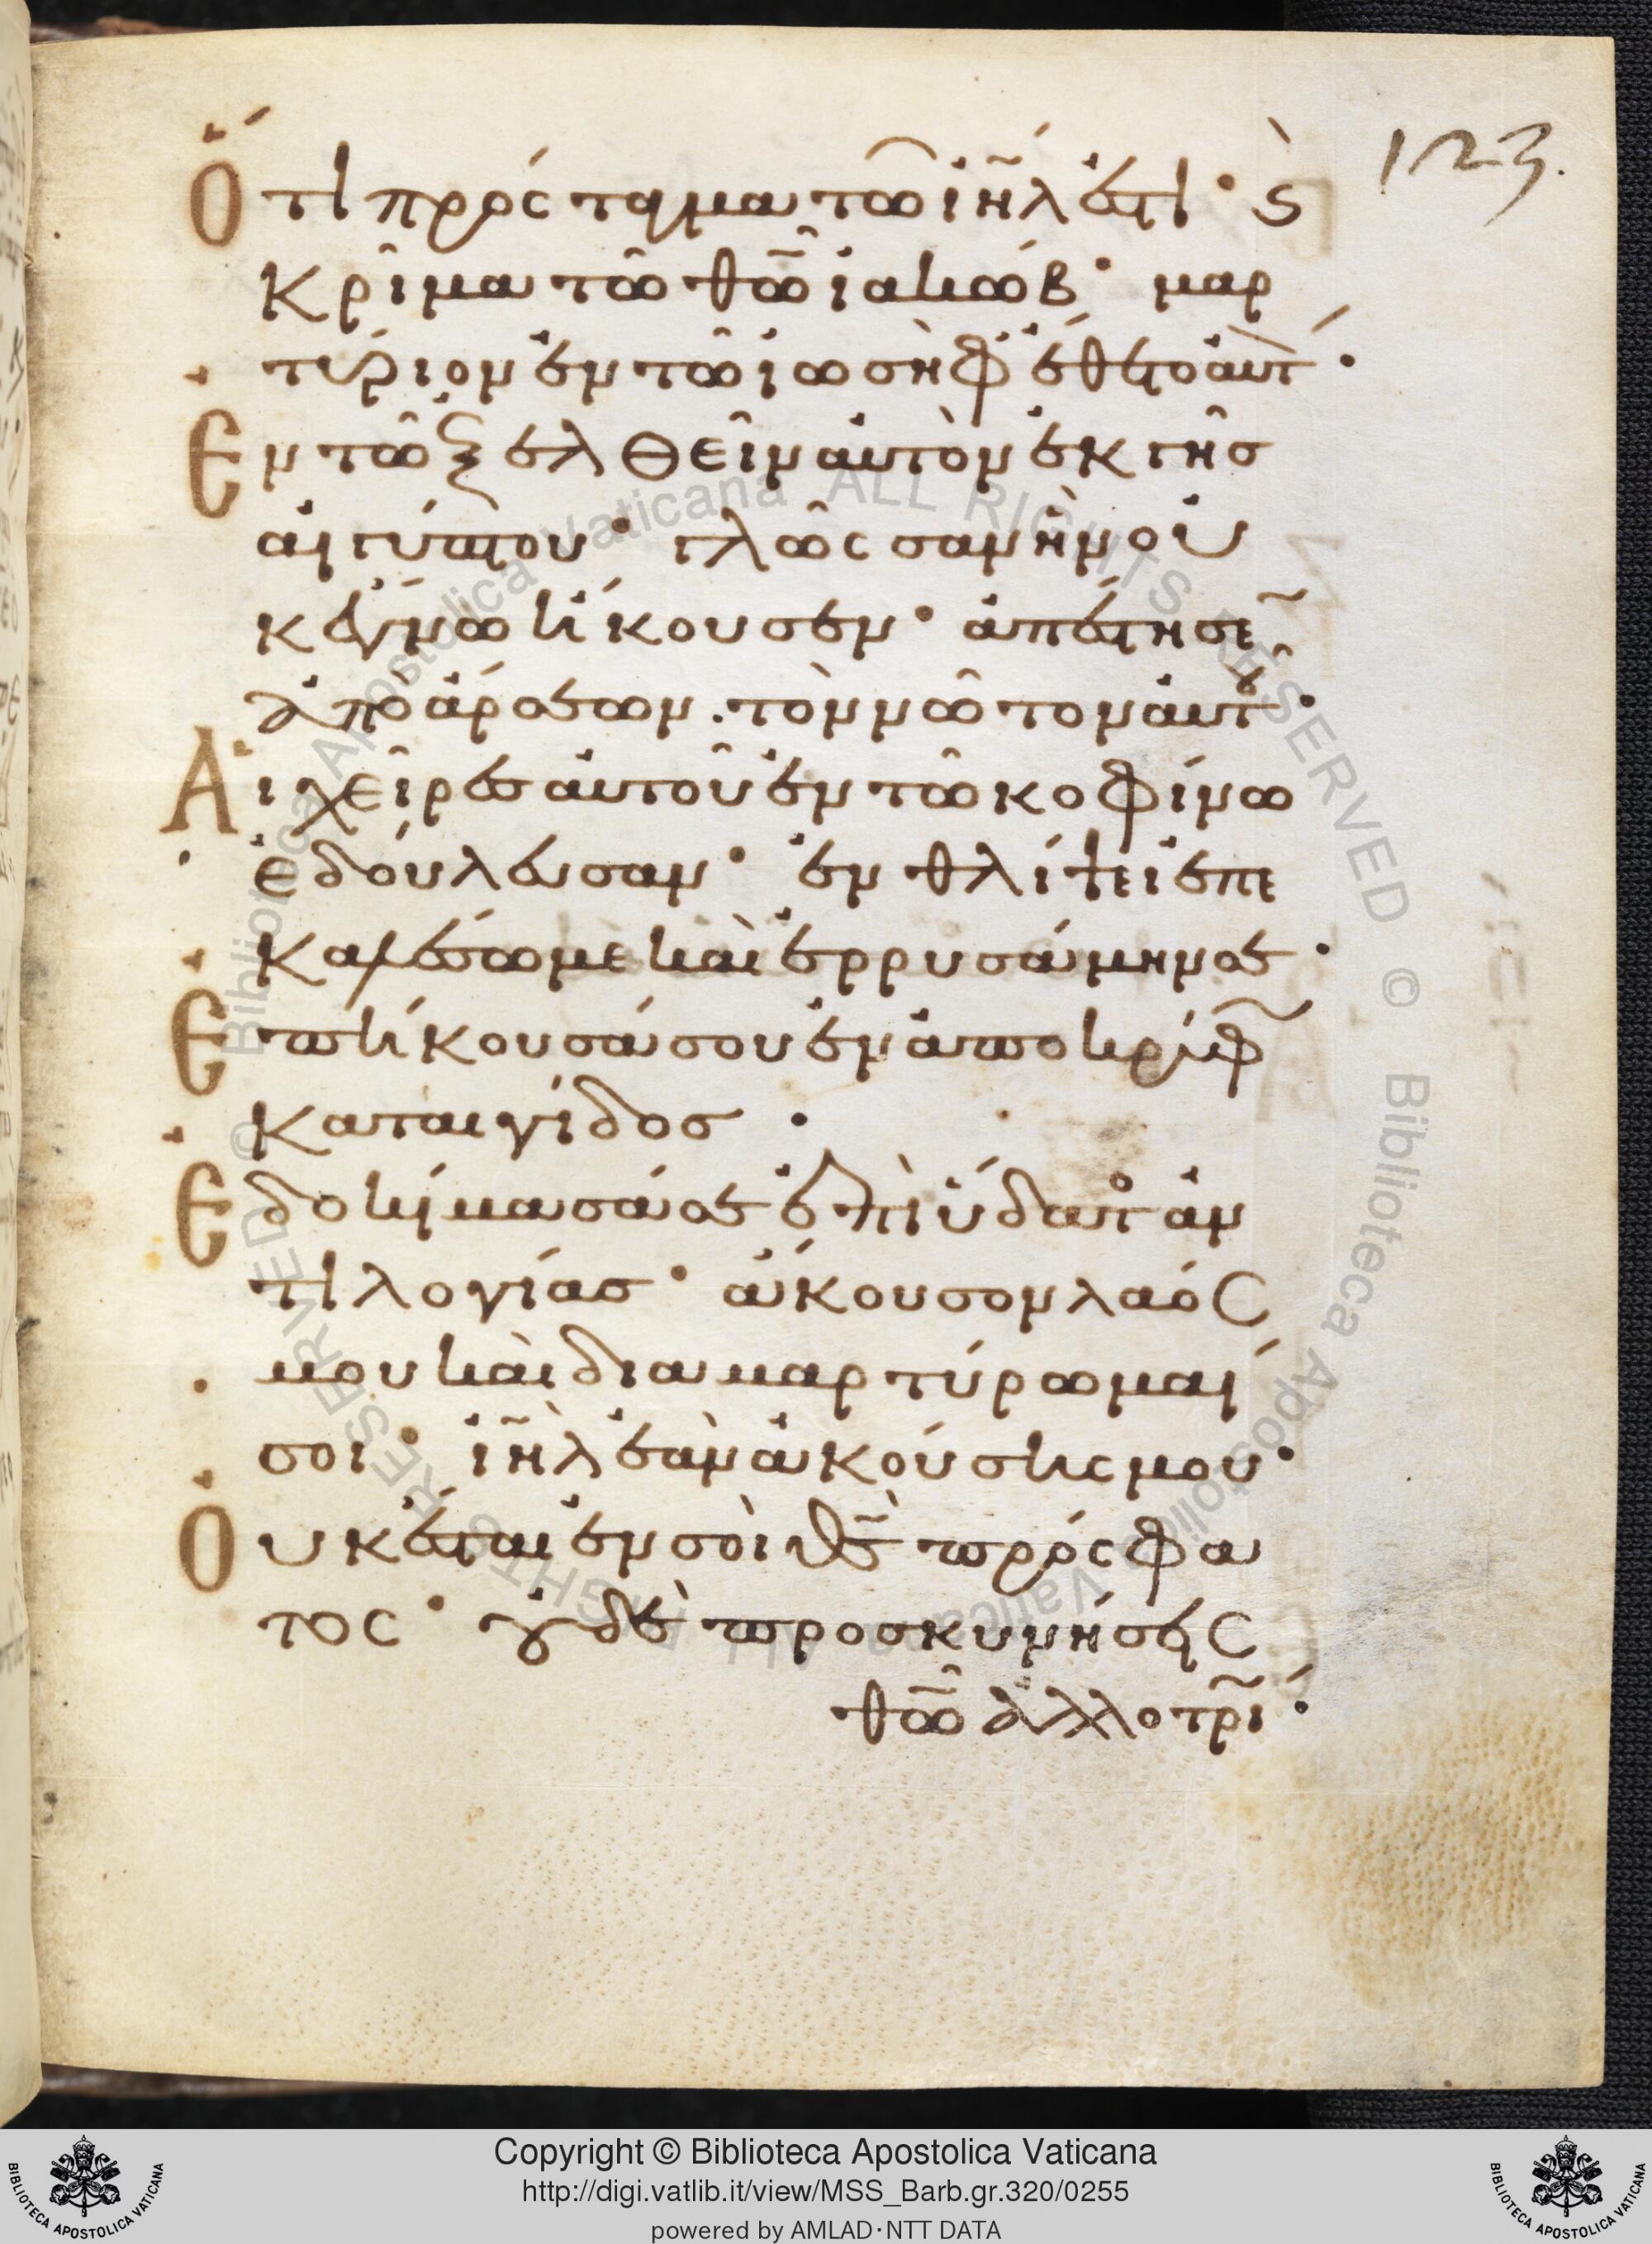 123.
Ὅτι πρόσταγμα τῶ ἰη̃λ ἐστί· ϛ̀
κρῖμα τῶ θω̃ ἰακώβ· μαρ
τύριον ἐν τῶ ἰωσὴφ ἔθετο αὐτ́·
Ἐν τῶ ἐξελθεῖν αὐτὸν ἐκ γῆσ
αἰγύπτου· γλῶσσαν ἣν οὐ
κ ἔγνω ἤκουσεν· ἀπέστησε͂
ἀπὸ ἄρσεων. τὸν νῶτον αὐτοῦ·
Αἱ χεῖρες αὐτοῦ ἐν τῶ κοφίνω
ἐδούλευσαν· ἐν θλίψει ἐπε
καλέσω με καὶ ἐρρυσάμην σε·
Ἐπήκουσά σου ἐν ἀποκρύφ
καταιγίδοσ·
Ἐδοκίμασά σε ἐπὶ ὕδατο ἀν
τιλογίασ· ἄκουσον λαόσ
μου καὶ διαμαρτύρωμαί
σοι· ἰη̃λ ἐὰν ἀκούσης μου·
Οὐκ ἔσται ἐν σοὶ θς̃ πρόσφα
τος· οὐδὲ προσκυνήσεις
θω̃ ἀλλοτρί·
Copyright © Biblioteca Apostolica Vaticana
http://digi.vatlib.it/view/MSS_Barb.gr.320/0255
powered by AMLAD·NTT DATA
BIBLIOTECA APOSTOLICA VATICANA
BIBLIOTECA APOSTOLICA VATICANA